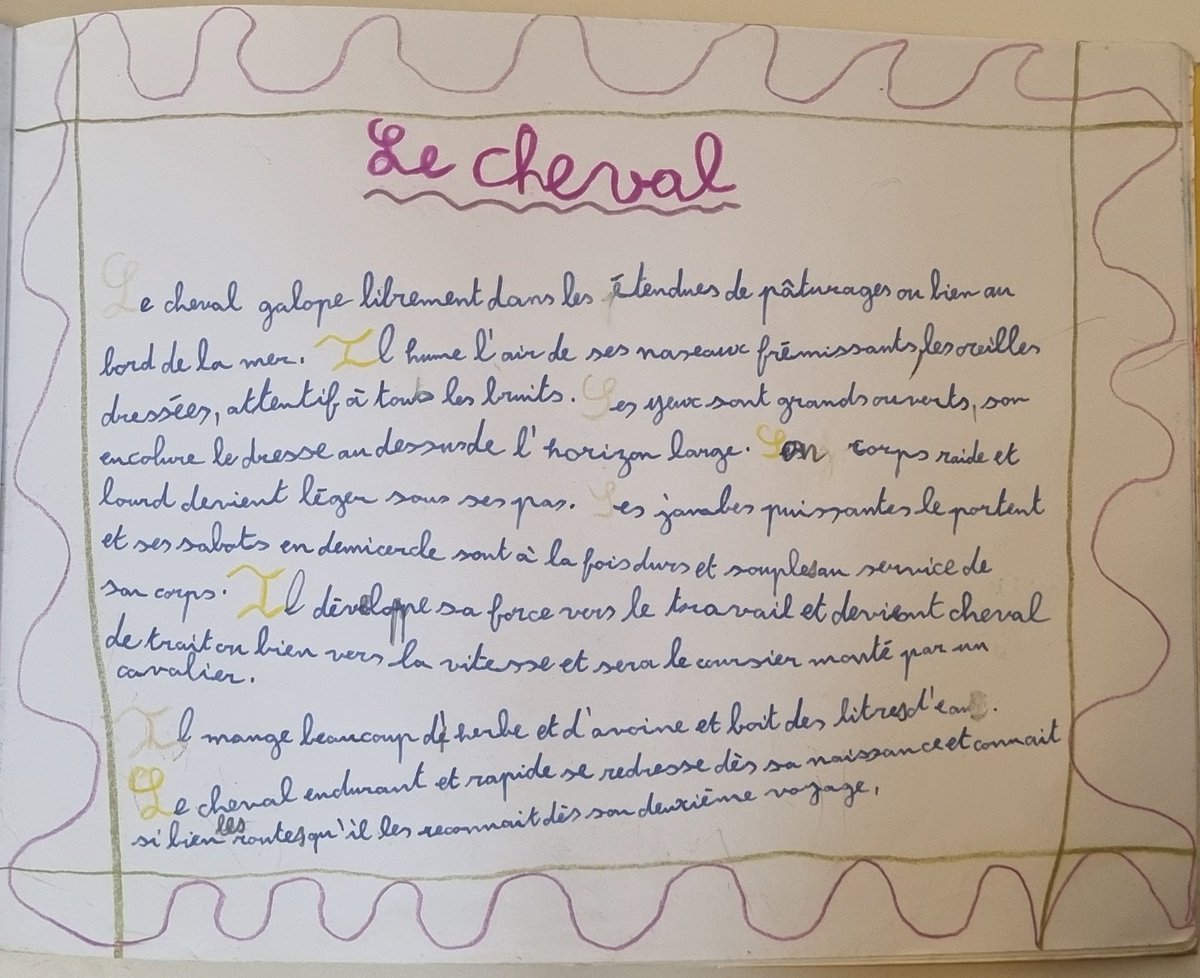 Le cheval
Le cheval galope librement dans les étendues de pâturages ou bien au
bord de la mer. Il hume l'air de ses naseaux frémissants, les oreilles
dressées, attentif à tous les bruits. Ses yeux sont grands ouverts, son
encolure le dresse au dessus de l'horizon large. Son corps raide et
lourd devient léger sous ses pas. Ses jambes puissantes le portent
et ses sabots en demi cercle sont à la fois durs et souples au service de
son corps. Il développe sa force vers le travail et devient cheval
de trait ou bien vers la vitesse et sera le coursier monté par un
cavalier.
Il mange beaucoup d'herbe et d'avoine et boit des litres d'eau.
Le cheval endurant et rapide se redresse dès sa naissance et connait
si bien les routes qu'il les reconnait dès son deuxième voyage.